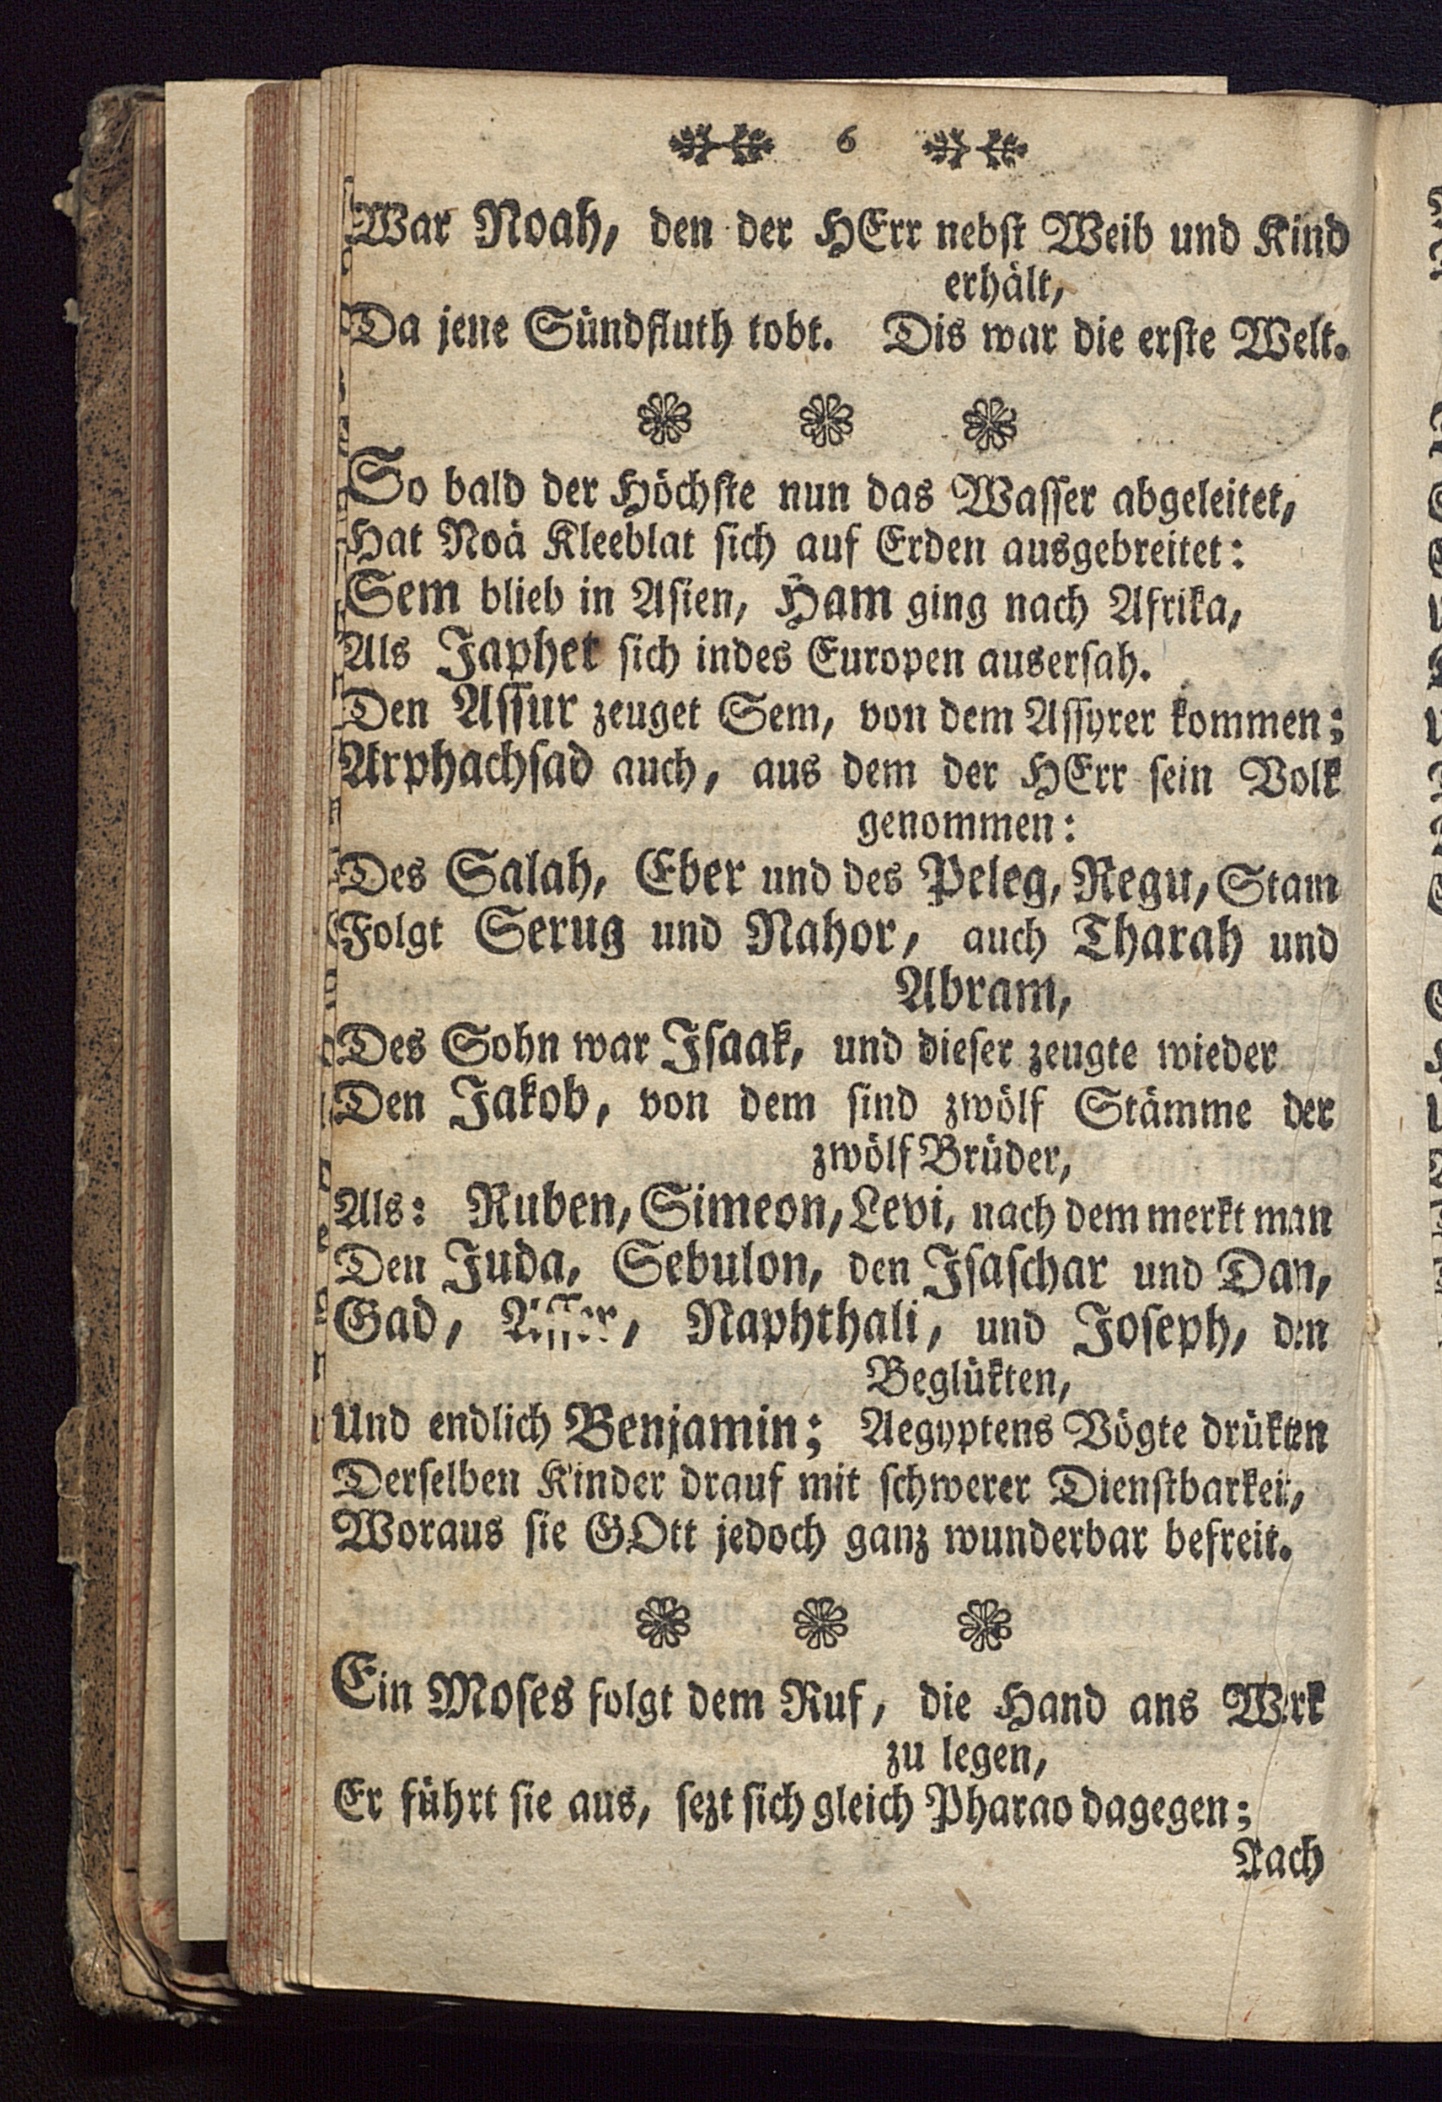 6
War Noah, den der HErr nebst Weib und Kind
erhält,
Da jene Sündfluth tobt. Dis war die erste Welt.
So bald der Höchste nun das Wasser abgeleitet,
Hat Noä Kleeblat sich auf Erden ausgebreitet:
Sem blieb in Asien, Ham ging nach Afrika,
Als Japhet sich indes Europen ausersah.
Den Assur zeuget Sem, von dem Assyrer kommen;
Arphachsad auch, aus dem der HErr sein Volk
genommen:
Des Salah, Eber und des Peleg, Regu, Stam
Folgt Serug und Nahor, auch Tharah und
Abram,
Des Sohn war Isaak, und dieser zeugte wieder
Den Jakob, von dem sind zwölf Stämme der
zwölf Brüder,
Als: Ruben, Simeon, Levi, nach dem merkt man
Den Juda, Sebulon, den Isaschar und Dan,
Gad, Asser, Naphthali, und Joseph, den
Beglükten,
Und endlich Benjamin; Aegyptens Vögte drükten
Derselben Kinder drauf mit schwerer Dienstbarkeit,
Woraus sie GOtt jedoch ganz wunderbar befreit.
Ein Moses folgt dem Ruf, die Hand ans Werk
zu legen,
Er führt sie aus, sezt sich gleich Pharao dagegen;
Nach